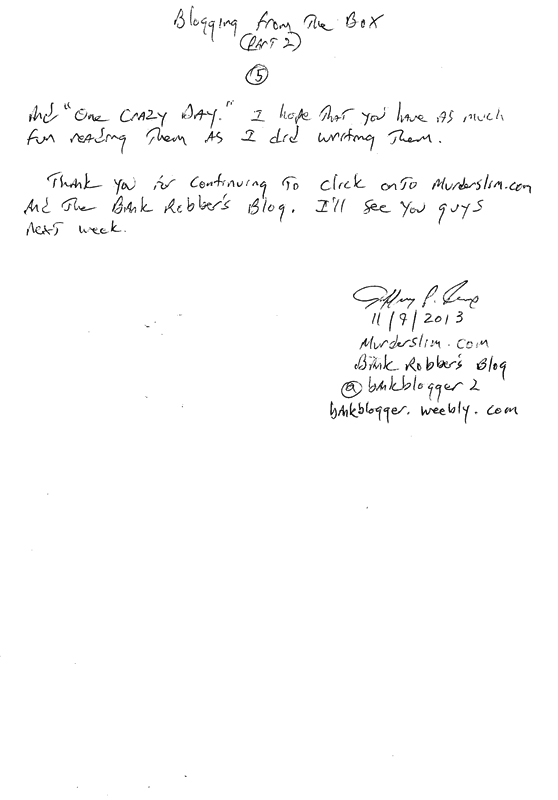 Blogging from The Box
(PART 2)
5
And "One CRAZY DAY." I hope that you have as much
fun reading Them As I did writing Them.
Thank you for continuing To click onTo Murderslim.com
And The Bank Robber's Blog. I'll see you guys
next week.
Jeffrey P.
11/9/2013
Murderslim.com
Bank Robber's Blog
@bankblogger2
bankblogger.weebly.com